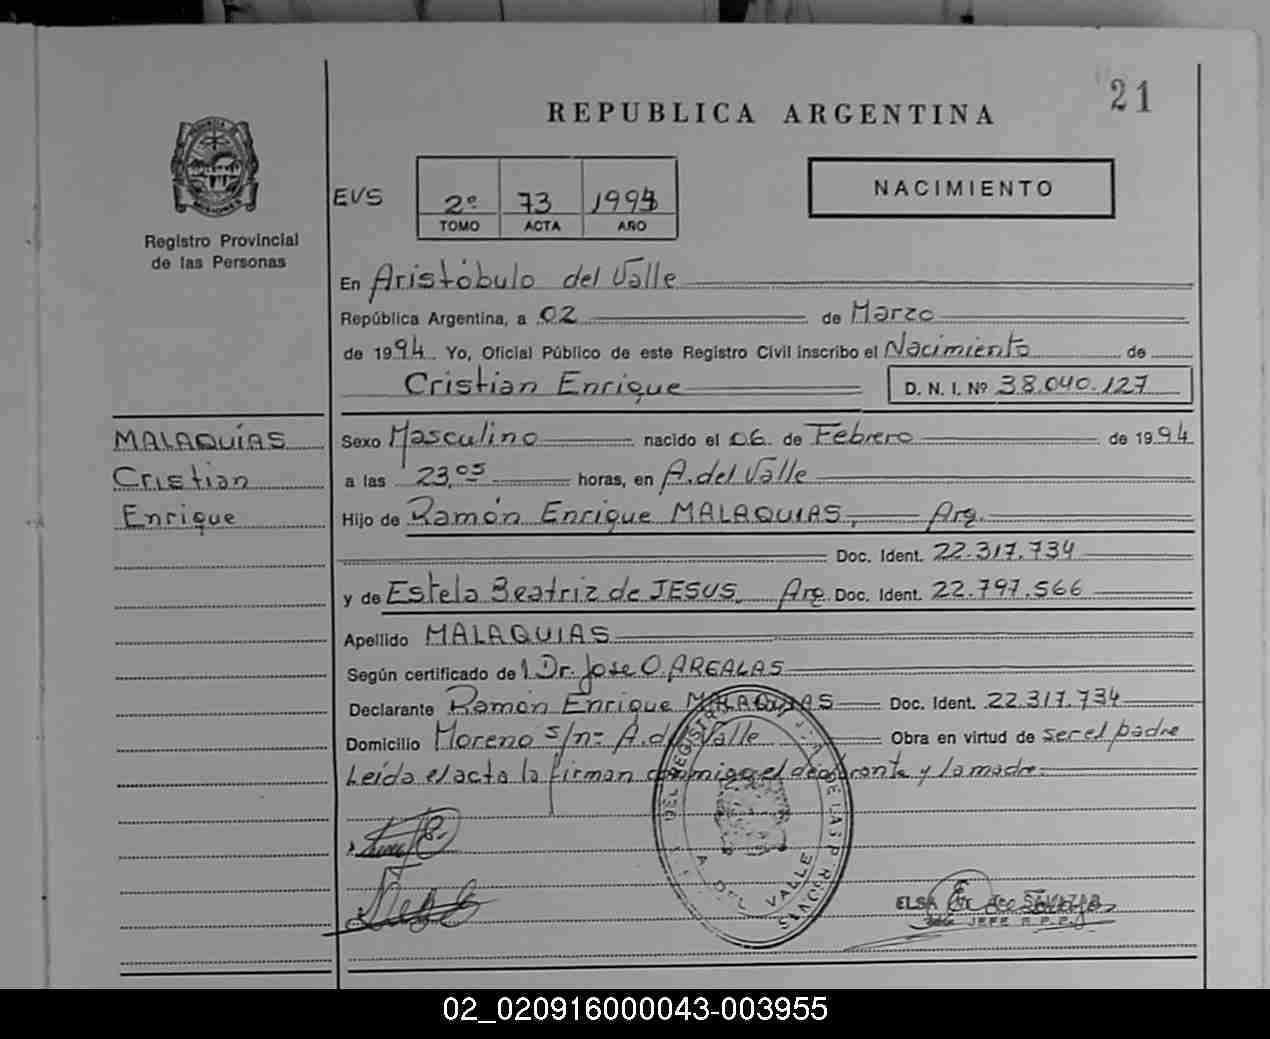 21
REPUBLICA ARGENTINA
NACIMIENTO
EVS
2º 73 1994
TOMO ACTA AÑO
Registro Provincial
de las Personas
En Aristóbulo del Valle
República Argentina, a 02 de Marzo
de 1994 Yo, Oficial Público de este Registro Civil inscribo el Nacimiento de
Cristian Enrique D. N. I. Nº 38.040.127
MALAQUÍAS
Cristian
Enrique
Sexo Masculino nacido el 06 de Febrero de 1994
a las 23,05 horas, en A. del Valle
Hijo de Ramón Enrique MALAQUIAS, Arg.
Doc. Ident. 22.317.734
y de Estela Beatriz de JESUS, Arg. Doc. Ident. 22.797.566
Apellido MALAQUIAS
Según certificado de l Dr. Jose O. AREALAS
Declarante Ramón Enrique MALAQUIAS Doc. Ident. 22.317.734
Domicilio Moreno s/nº A. del Valle Obra en virtud de ser el padre
Leída el acta la firman conmigo el declarante y la madre.
A. DEL VALLE
ELSA de SALAZAR
JEFE R.P.P.
02_020916000043-003955